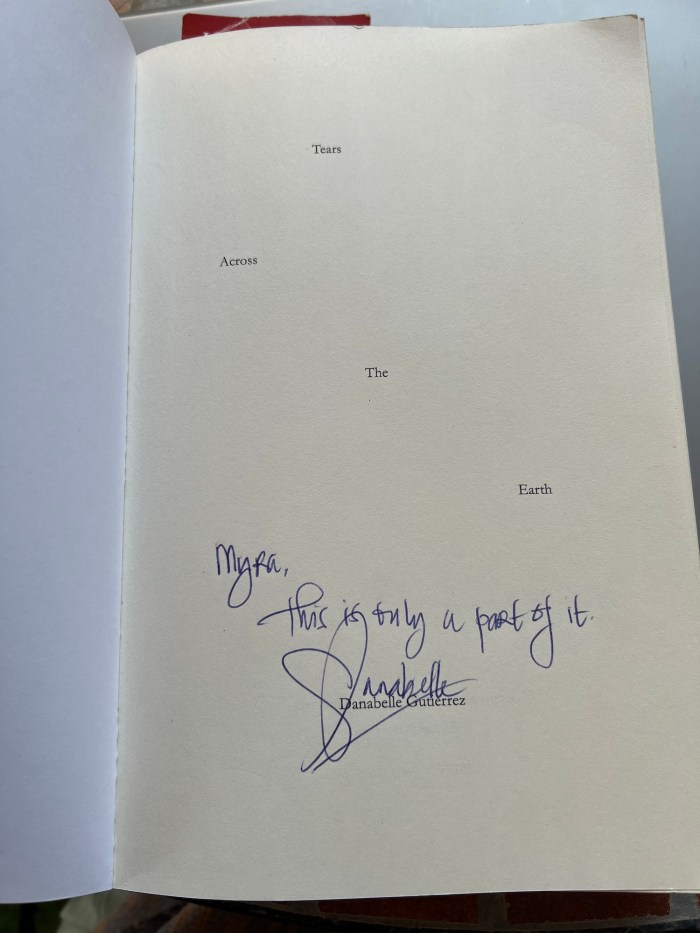 Tears
Across
The
Earth
Myra,
This is only a part of it.
Danabelle
Danabelle Gutierrez